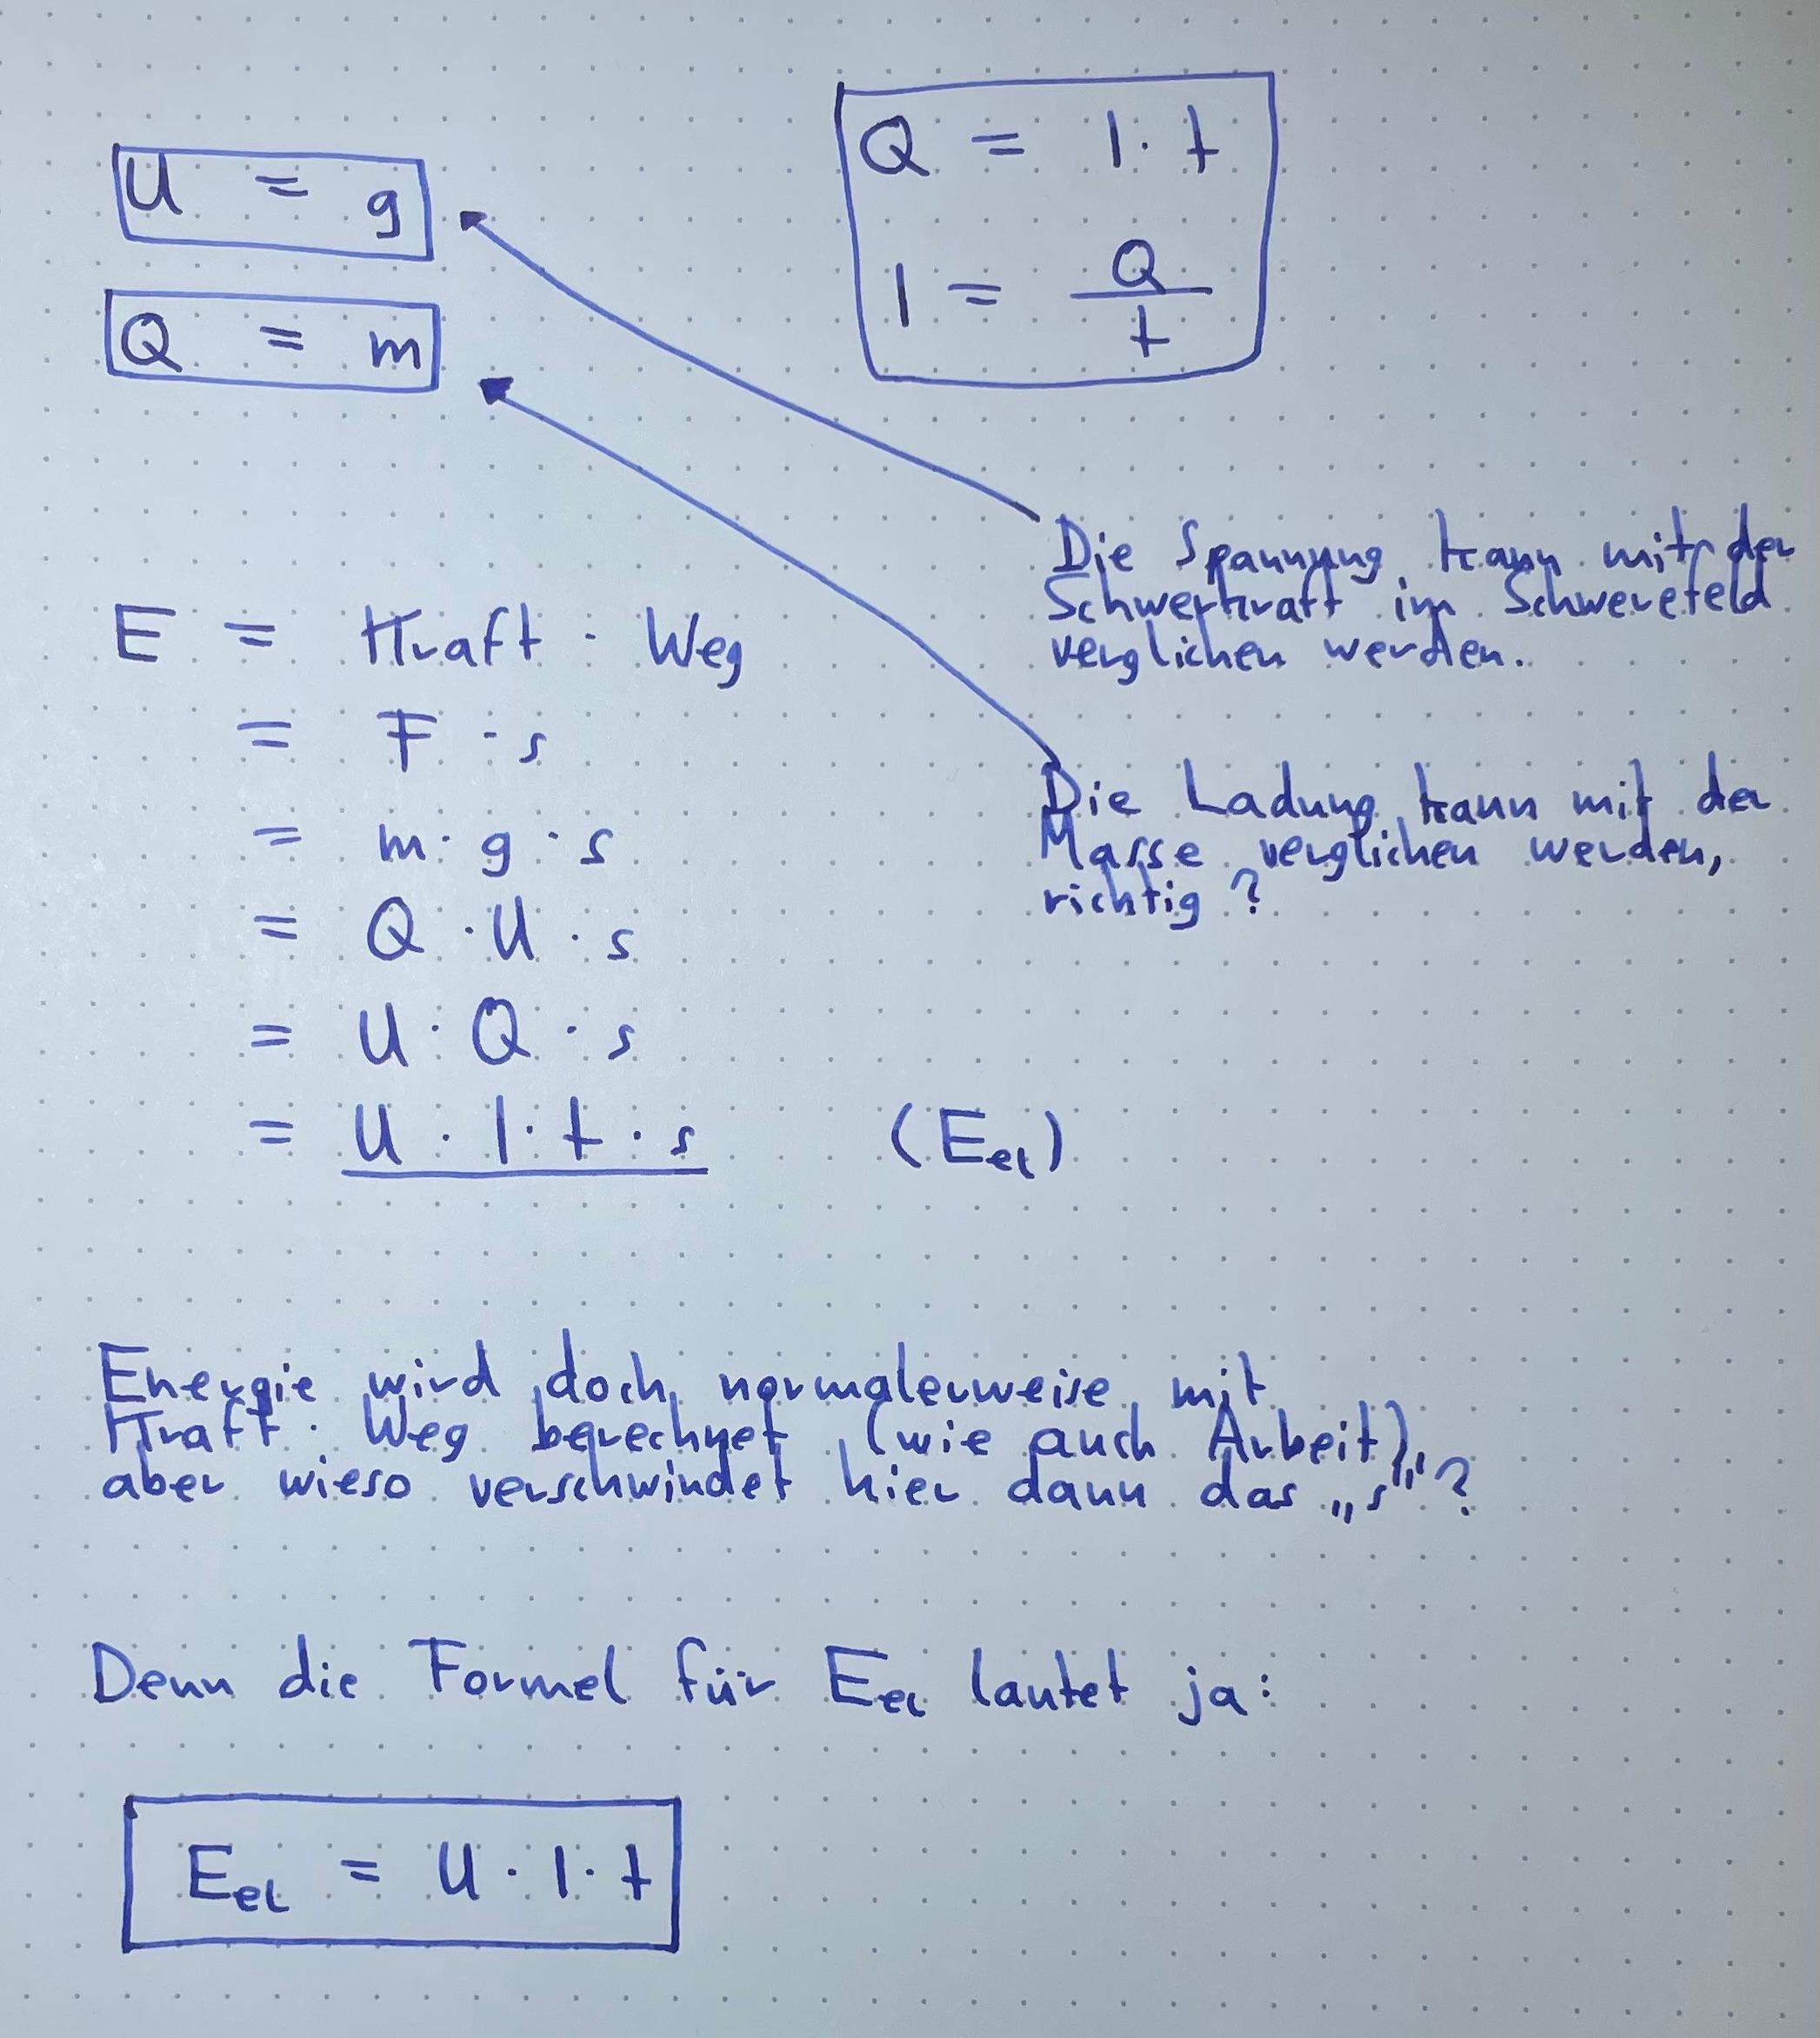 U = g
Q = m
Q = I · t
I = Q / t
Die Spannung kann mit der
Schwerkraft im Schwerefeld
verglichen werden.
Die Ladung kann mit der
Masse verglichen werden,
richtig?
E = Kraft · Weg
= F · s
= m · g · s
= Q · U · s
= U · Q · s
= U · I · t · s (Eel)
Energie wird doch normalerweise mit
Kraft · Weg berechnet (wie auch Arbeit),
aber wieso verschwindet hier dann das „s"?
Denn die Formel für Eel lautet ja:
Eel = U · I · t